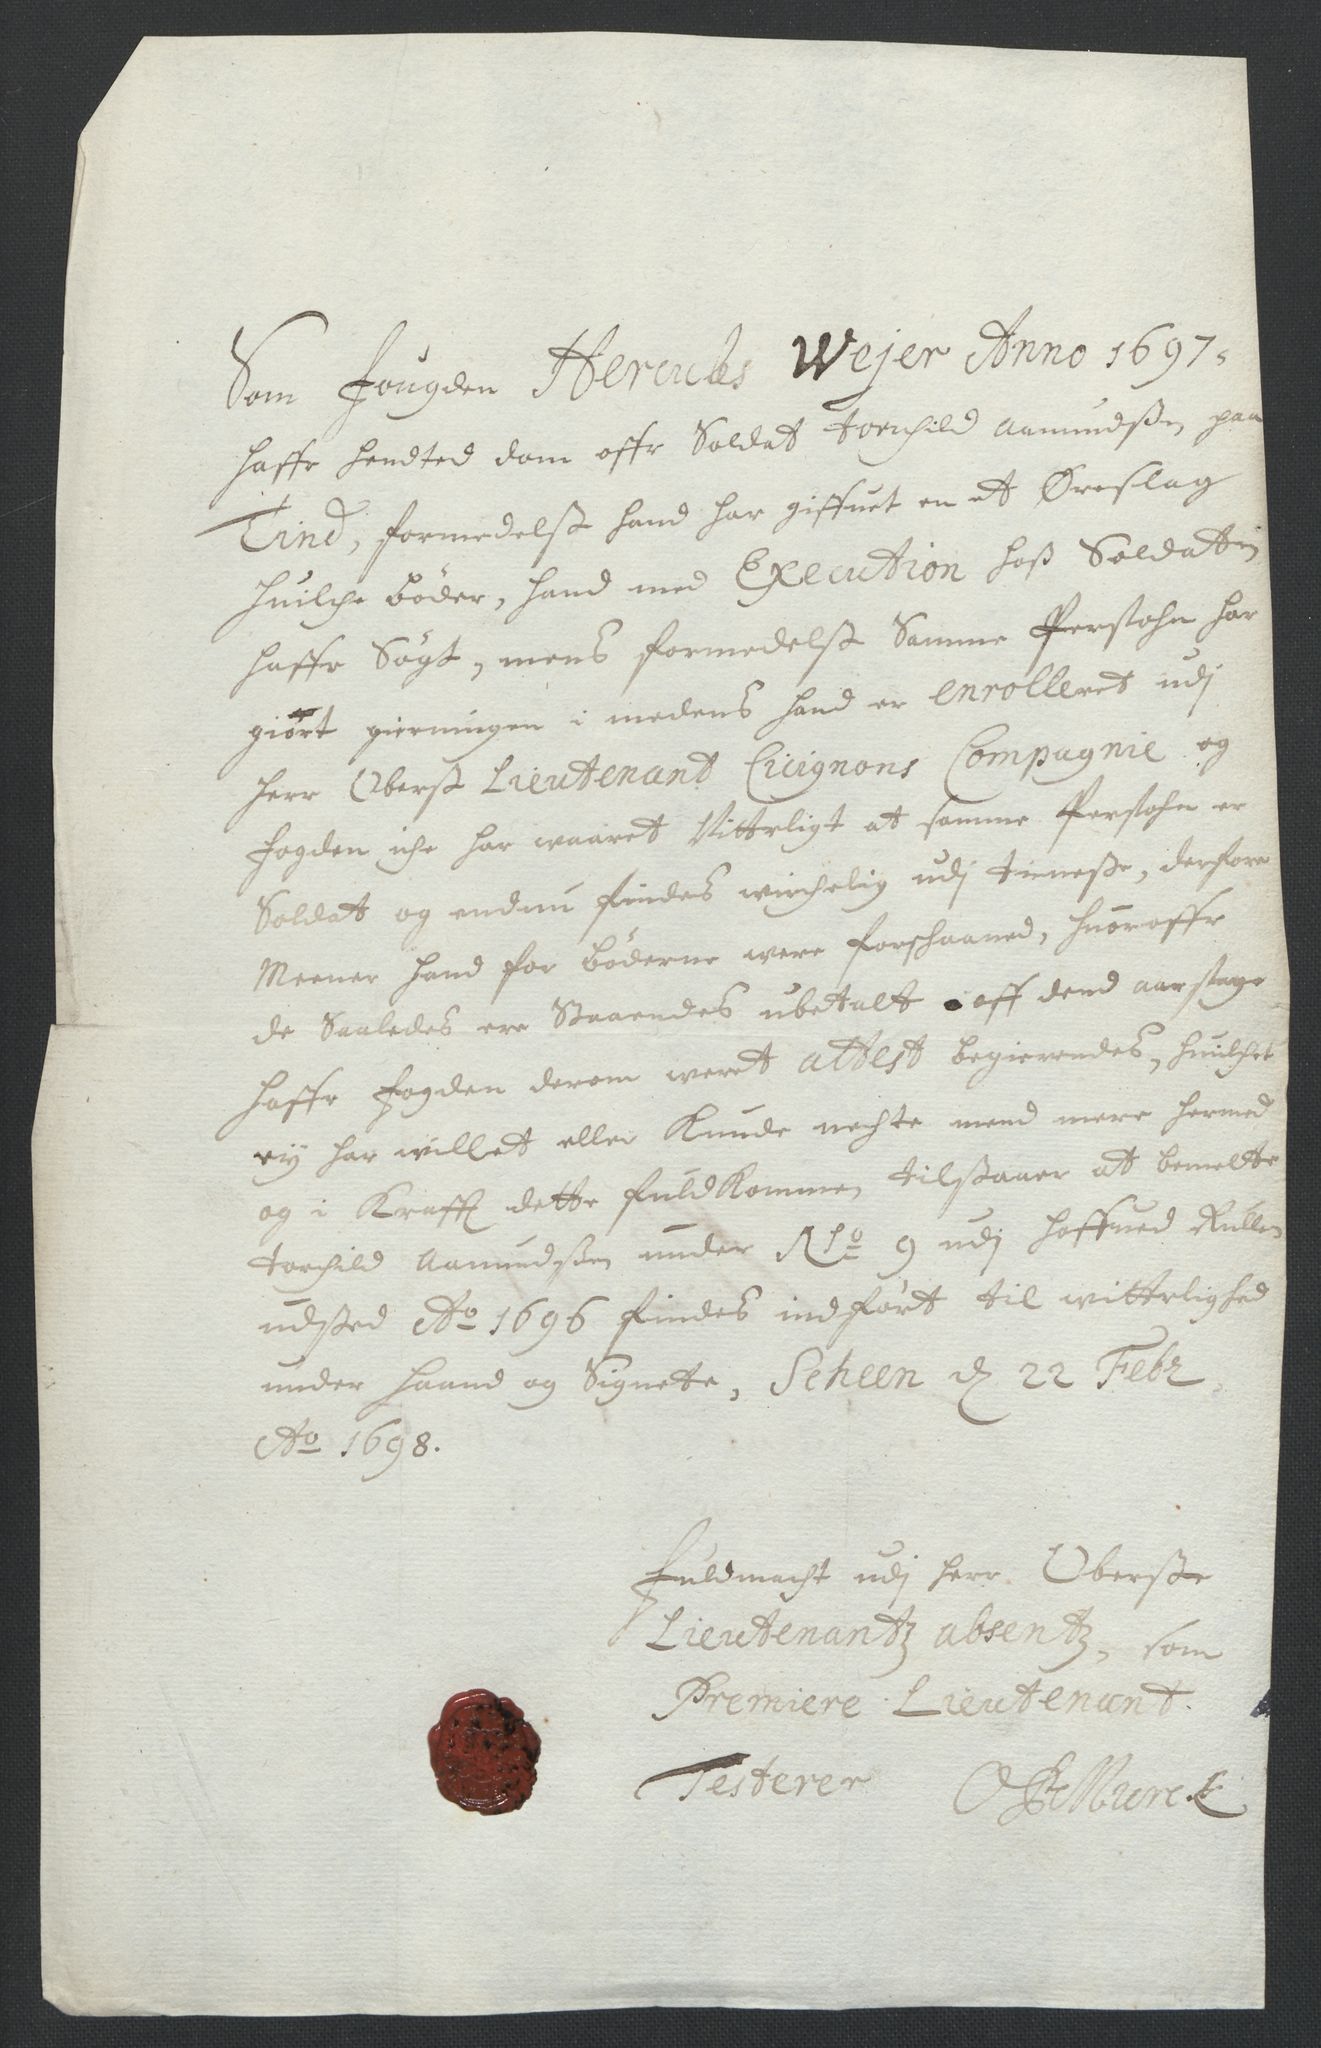 Som Fougden Hercules Wejer Anno 1697,
haffr hendted dom offr Soldat Torchild Aamundßen paa
Tind, formedelst hand har giffuet en et Øreslag
huilche Böder, hand med Execution hoß Soldaten
haffr Sögt, mens formedelst Samme Perssohn har
giört gierningen i medens hand er enrolleret udj
Herr Oberst Lieutenant Cicignons Compagnie og
fogden iche har waaret Vitterligt at samme Perssohn er
Soldat og endnu findes wirchelig udj tieneste, derfore
Meener hand for Böderne were forschaaned, huoroffr
de Saaledes ere Staaendes ubetalt off dend aarsage
haffr fogden derom weret attest begierendes, huilchet
ey har willet eller Kunde nechte mend mere hermed
og i Krafft dette fuldkommen tilstaaer at bemeldte
Torchild Aamundßen under No 9 udj hoffued Rullen
udsted Ao 1696 findes indfört til witterlighed
under haand og Signete, Scheen d 22 Febr
Ao 1698.
Fuldmacht udj herr Oberste
Lieutenantz absentz, som
Premiere Lieutenant.
Testerer